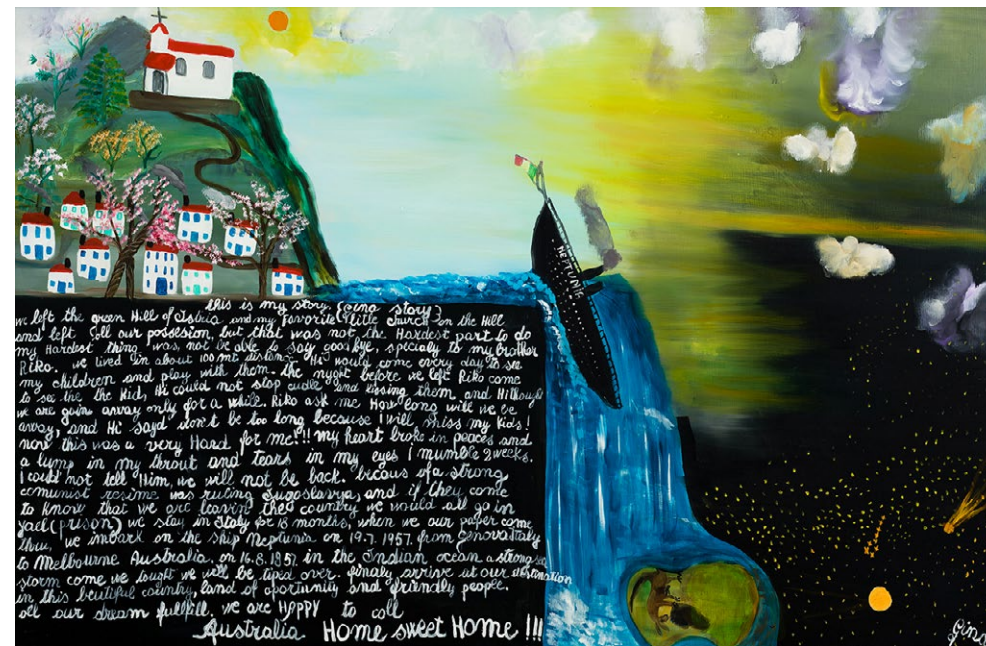 NEPTUNIA
this is my story (gino story)
we left the green Hill of Istria and my favorite little church on the Hill
and left all our possesion, but that was not the Hardest part to do
my Hardest thing was, not be able to say goodbye, specialy to my brother
Riko. we lived in about 100 mt distance. He would come every day to see
my children and play with them. the night before we left Riko come
to see the the kid, He could not stop cudle and kissing them, and Hi though
we are goin away only for a while. Riko ask me How long will we be
away, and Hi sayd don't be too long because I will miss my kids!
now this was a very Hard for me!!! my heart broke in peaces and
a lump in my throut and tears in my eyes I mumble 2 weeks.
I could not tell Him, we will not be back. becous of a strong
comunist resime was ruling Jugoslavya, and if they come
to know that we are leavin the country we would all go in
jael (prison) we stay in Italy for 18 months, when we our paper come
thru, we imbark on the ship Neptunia on 19.7.1957. from Genova Italy
to Melbourne Australia on 16.8.1957. in the Indian ocean a strong
storm come we tought we will be tiped over. finaly arrive at our destination
in this beutiful country, land of oportunity and friendly people.
all our dream fullfill. we are HAPPY to call
Australia Home sweet Home !!!
Gino